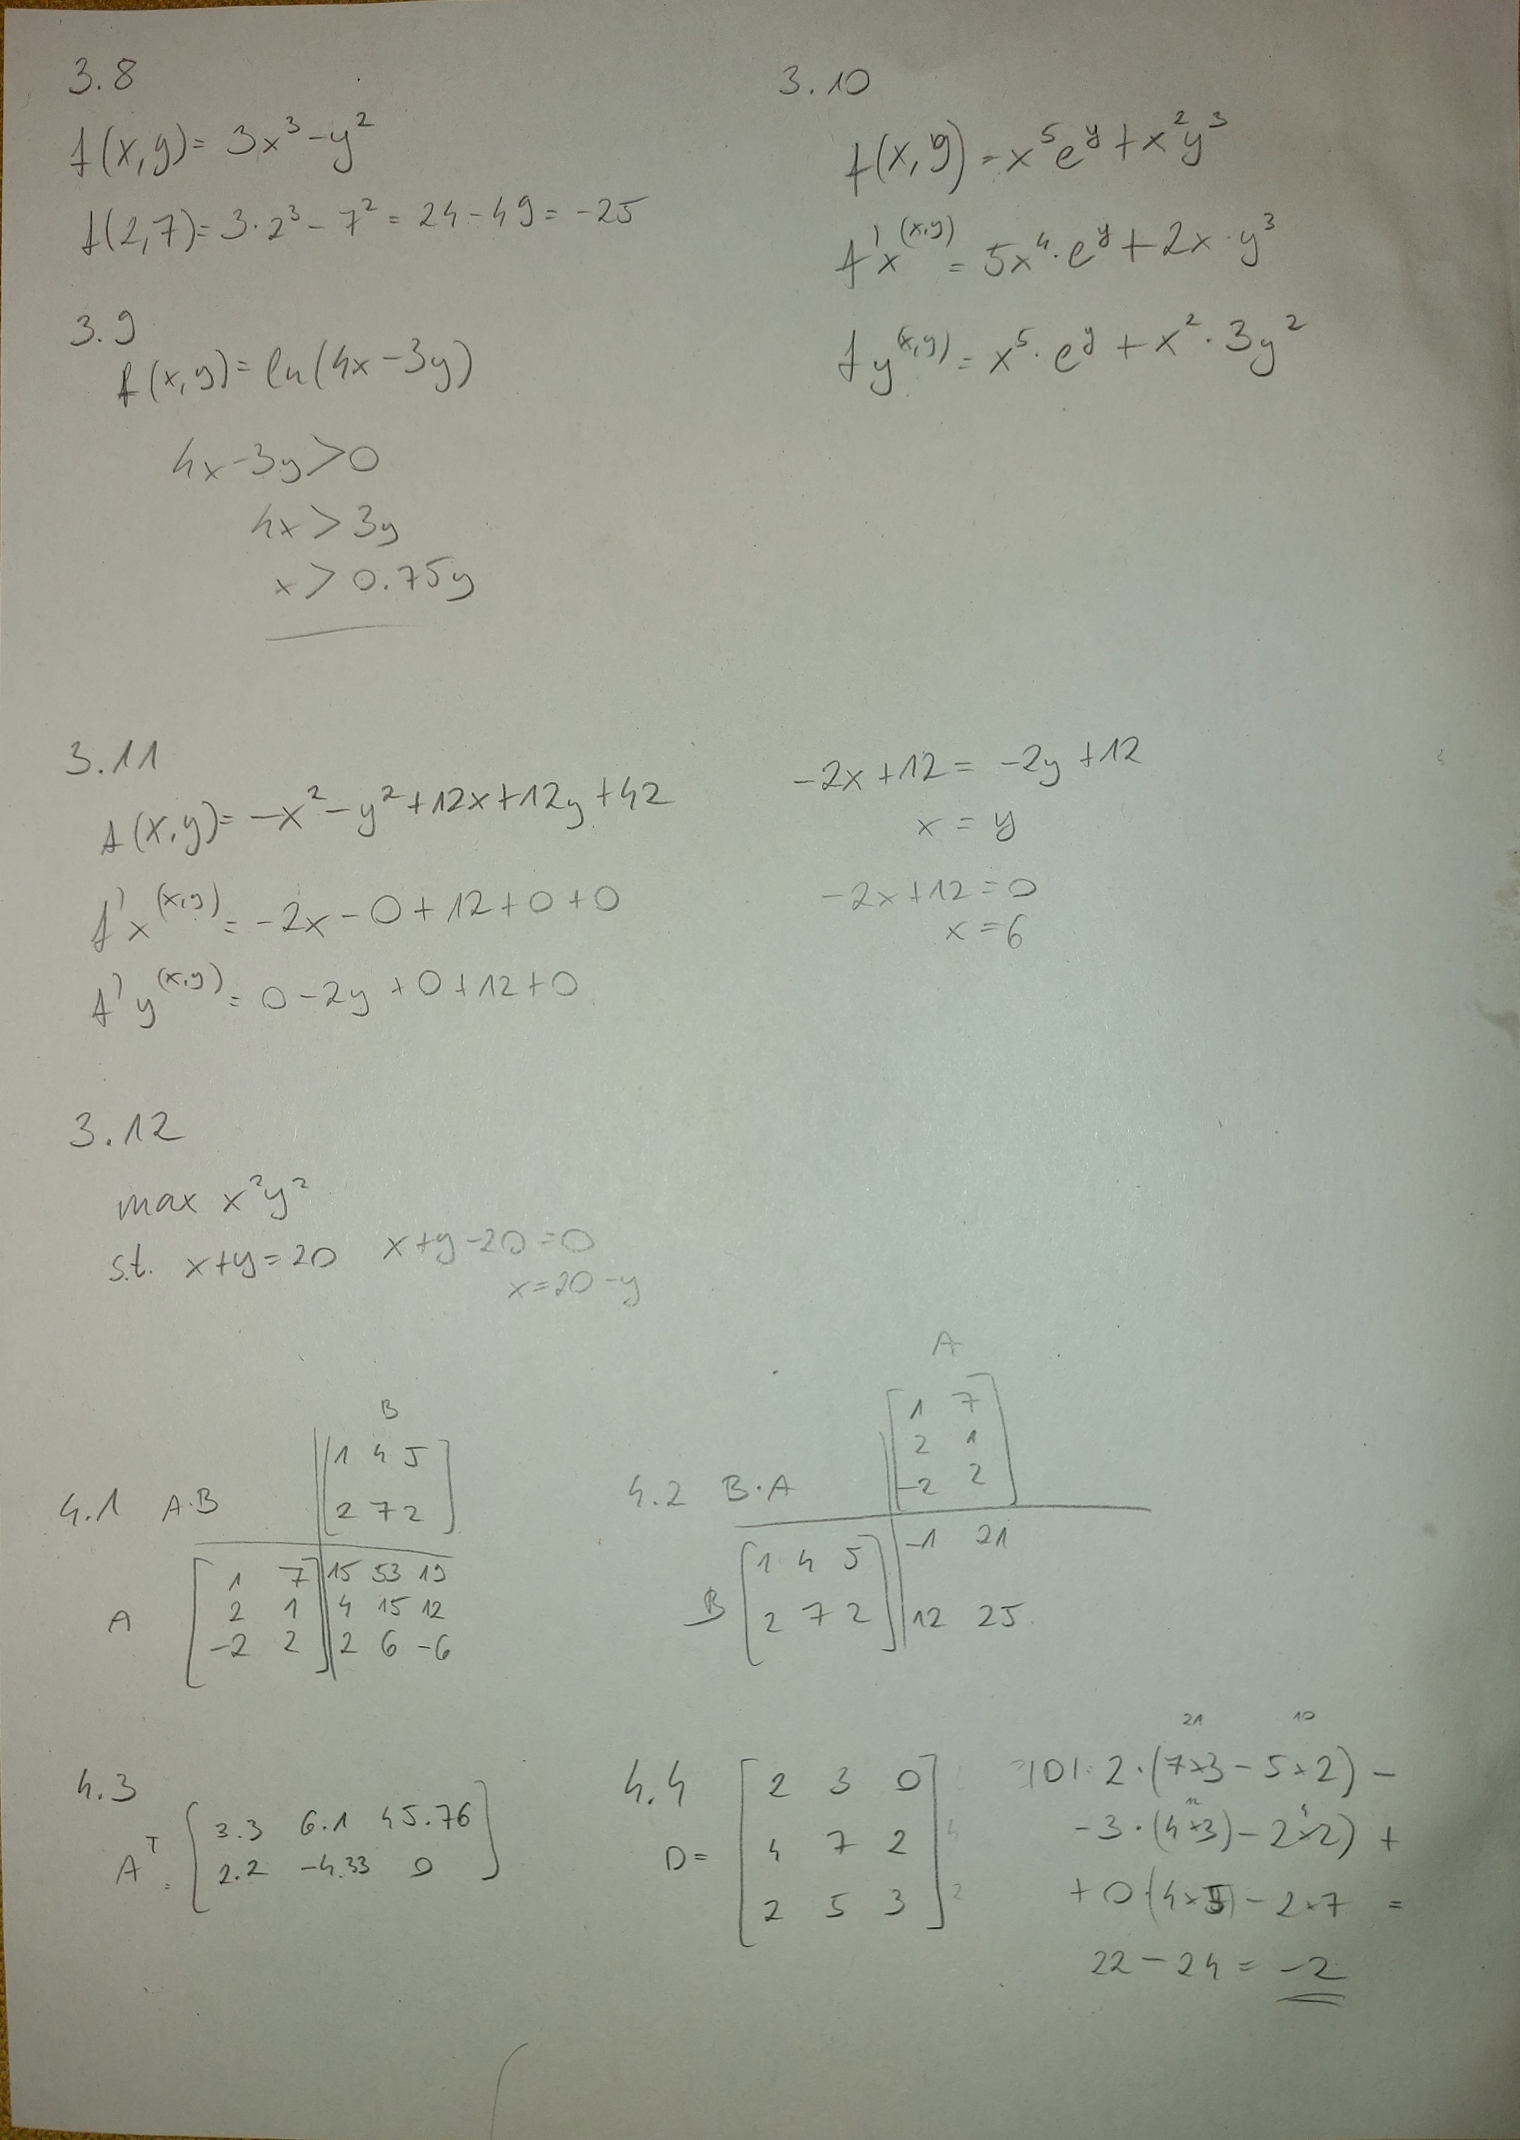 3.8
f(x,y)= 3x³-y²
f(2,7)= 3·2³- 7² = 24-49= -25
3.9
f(x,y)= ln(4x-3y)
4x-3y>0
4x>3y
x>0.75y
3.10
f(x,y)=x⁵eʸ+x²y³
f'x(x,y)= 5x⁴·eʸ+2x·y³
fy(x,y)= x⁵·eʸ+x²·3y²
3.11
f(x,y)= -x²-y²+12x+12y+42
f'x(x,y)= -2x-0+12+0+0
f'y(x,y)= 0-2y+0+12+0
-2x+12= -2y+12
x=y
-2x+12=0
x=6
3.12
max x²y²
s.t. x+y=20 x+y-20=0
x=20-y
B
1 4 5
4.1 A·B 2 7 2
1 7 15 53 19
A 2 1 4 15 12
-2 2 2 6 -6
A
1 7
2 1
4.2 B·A -2 2
1 4 5 -1 21
B 2 7 2 12 25
4.3
Aᵀ= 3.3 6.1 45.76
2.2 -4.33 0
4.4
2 3 0
D= 4 7 2
2 5 3
21 10
|D|: 2·(7×3-5×2)-
12 4
-3·(4×3)-2×2)+
+0(4×5)-2×7 =
22-24=-2